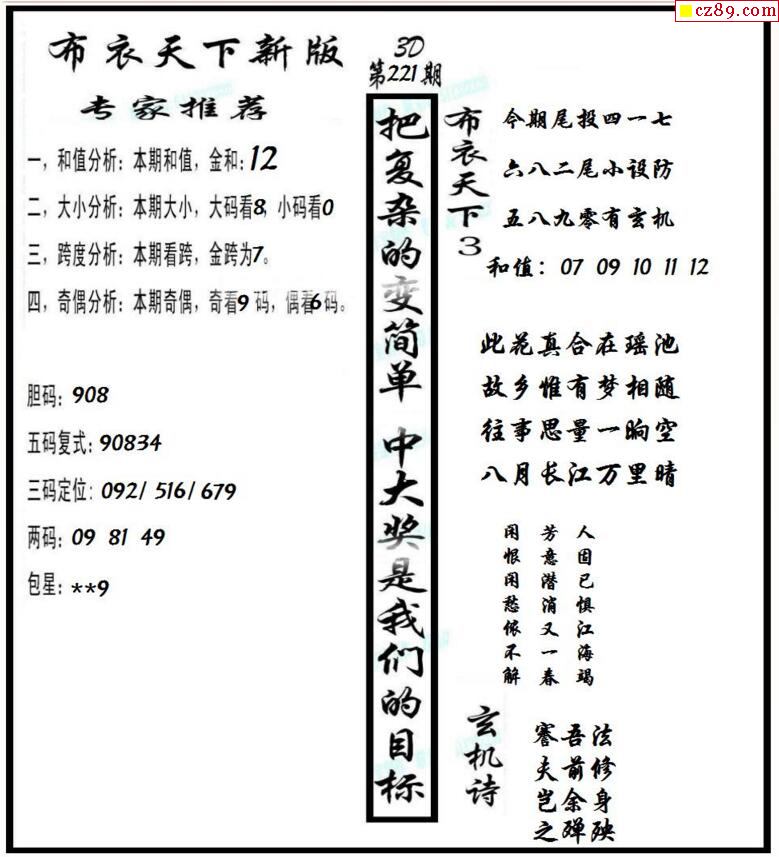 cz89.com
布衣天下新版
专家推荐
一，和值分析：本期和值，金和：12
二，大小分析：本期大小，大码看8，小码看0
三，跨度分析：本期看跨，金跨为7。
四，奇偶分析：本期奇偶，奇看9码，偶看6码。
胆码：908
五码复式：90834
三码定位：092/ 516/ 679
两码：09 81 49
包星：**9
3D
第221期
把复杂的变简单 中大奖是我们的目标
布衣天下3
今期尾投四一七
六八二尾小设防
五八九零有玄机
和值：07 09 10 11 12
此花真合在瑶池
故乡惟有梦相随
往事思量一晌空
八月长江万里晴
人固已惧江海竭
芳意潜消又一春
闲恨闲愁侬不解
玄机诗
法修身殃
吾前余殚
謇夫岂之